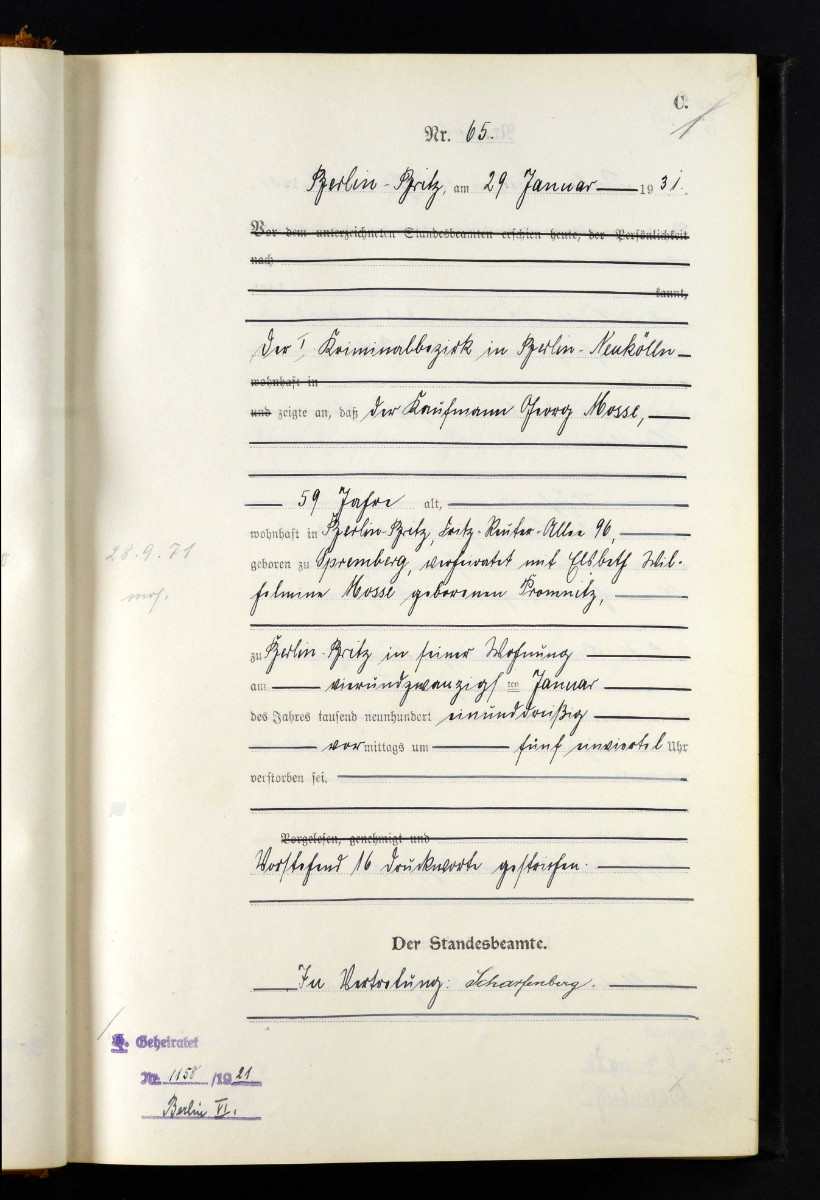 C.
Nr. 65.
Berlin-Britz, am 29 Januar 1931.
Vor dem unterzeichneten Standesbeamten erschien heute, der Persönlichkeit
nach
kannt,
Der I. Kriminalbezirk in Berlin-Neukölln
wohnhaft in
und zeigte an, daß der Kaufmann Georg Mosse,
59 Jahre alt,
wohnhaft in Berlin-Britz, Fritz-Reuter-Allee 96,
28.9.71
geboren zu Spremberg, verheiratet mit Elsbeth Wil-
helmine Mosse geborenen Promnitz,
mos.
zu Berlin-Britz in seiner Wohnung
am vierundzwanzigsten Januar
des Jahres tausend neunhundert einunddreißig
vormittags um fünf einviertel Uhr
verstorben sei.
Vorgelesen, genehmigt und
Vorstehend 16 Druckworte gestrichen.
Der Standesbeamte.
In Vertretung: Scharfenberg.
Geheiratet
Nr. 1158/1921
Berlin VI.